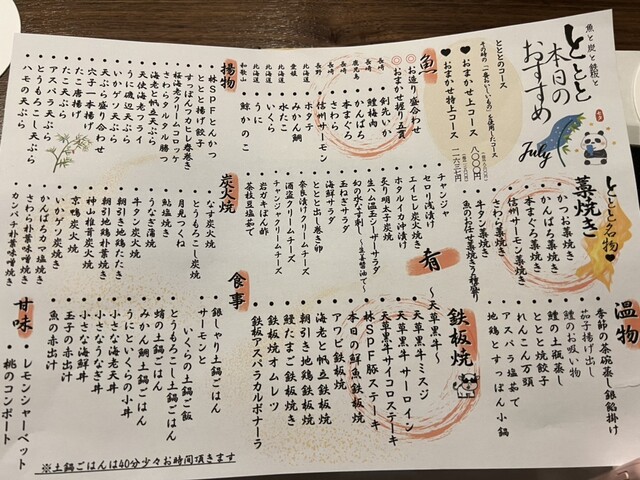 魚と炭と鉄板と
ととと
本日の
おすすめ
July
とととのコース
その時の「一番おいしいもの」を使用したコース
♥おまかせコース
八〇〇〇円
♥おまかせ特上コース
魚
◎お造り盛り合わせ
◎おまかせ握り五貫
長崎 剣先いか
長崎 鯵梅肉
鹿児島 かんぱち
長崎 本まぐろ
長崎 さわら
長野 信州サーモン
愛媛 みかん鯛
北海道 水たこ
北海道 いくら
北海道 うに
和歌山 鯨かのこ
揚物
・林SPFとんかつ
・ととと揚げ餃子
・すっぽんつカヒレ春巻き
・桜海老クリームコロッケ
・さわらタルタル勝つ
・海老と帆立天ぷら
・天使海老フライ
・いかゲソ天ぷら
・うに磯辺天ぷら
・天ぷら盛り合わせ
・穴子一本揚げ
・たこ唐揚げ
・たこ天ぷら
・アスパラ天ぷら
・とうもろこし天ぷら
・ハモの天ぷら
とととの名物♥
藁焼き
・かつお藁焼き
・かんぱち藁焼き
・本まぐろ藁焼き
・信州サーモン藁焼き
・さわら藁焼き
・牛タン藁焼き
・魚のお任せ藁焼き三種盛り
肴
・チャンジャ
・セロリ浅漬け
・エイヒレ炭火焼き
・ホタルイカ沖漬け
・炙り明太子
・生ハム温玉シーザーサラダ
・海鮮サラダ
・玉ねぎサラダ
・ととと出し巻き卵
・奈良漬けクリームチーズ
・酒盗クリームチーズ
・チャンジャクリームチーズ
・岩ガキぽん酢
・茶枝豆塩茹で
炭火焼
・なす炭火焼
・とうもろこし炭焼
・月見つくね
・鮎塩焼き
・うなぎ蒲焼
・牛タン炭焼き
・朝引き地鶏たたき
・朝引き地鶏炭火焼
・神山椎茸炭火焼
・京鴨炭火焼
・いかゲソ炭焼き
・かんぱちカマ塩焼き
・さわら朴葉味噌焼き
・カンパチ朴葉味噌焼き
温物
・季節の茶碗蒸し銀餡掛け
・茄子揚げ出し
・鱧のお吸い物
・鱧の土瓶蒸し
・ととと焼餃子
・れんこん万頭
・アスパラ塩茹で
・地鶏とすっぽん小鍋
鉄板焼
～天草黒牛～
・天草黒牛ミスジ
・天草黒牛サーロイン
・天草黒牛サイコロステーキ
・林SPF豚ステーキ
・本日の鮮魚鉄板焼
・アワビ鉄板焼
・海老と帆立鉄板焼
・朝引き地鶏鉄板焼
・鰻まご鉄板焼き
・鉄板焼オムレツ
・鉄板アスパラカルボナーラ
食事
・銀しゃり土鍋ごはん
・サーモンと
いくらの土鍋ご飯
・とうもろこし土鍋ごはん
・蛸の土鍋ごはん
・みかん鯛土鍋ごはん
・うにといくらの小丼
・小さな海老天丼
・小さなうなぎ丼
・小さな海鮮丼
・玉子の赤出汁
・魚の赤出汁
甘味
・レモンシャーベット
・桃のコンポート
※土鍋ごはんは40分少々お時間頂きます